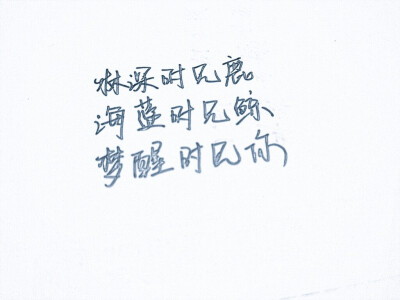 林深时见鹿。
海蓝时见鲸、
梦醒时见你